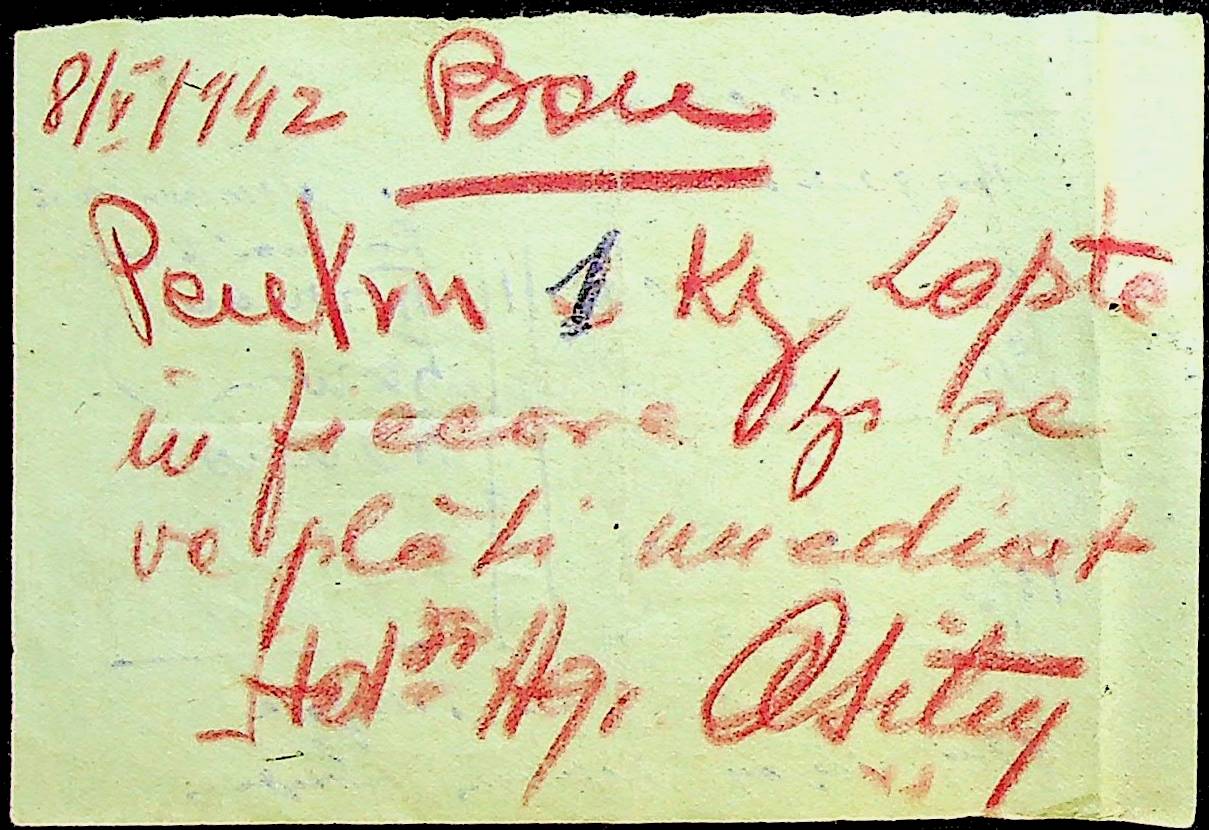 8/V/1942 Bon
Pentru 1 Kg Lapte
în fiecare zi se
va plăti imediat